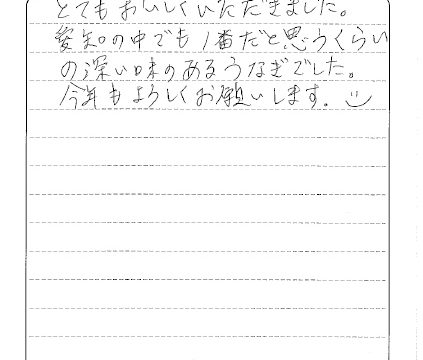 とてもおいしくいただきました。
愛知の中でも1番だと思うくらい
の深い味のあるうなぎでした。
今年もよろしくお願いします.